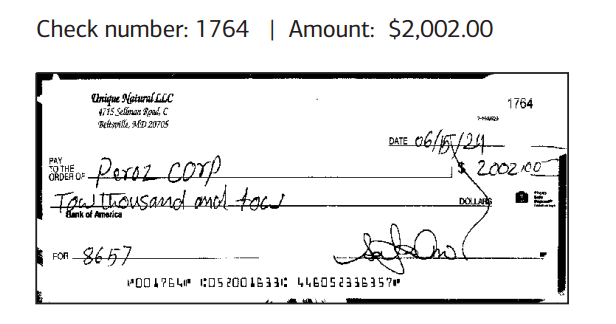 Check number: 1764 | Amount: $2,002.00
Unique Natural LLC
4715 Sellman Road, C
Beltsville, MD 20705
1764
DATE 06/15/24
PAY TO THE ORDER OF Peroz Corp
$ 2002.00
Tow thousand and tow DOLLARS
Bank of America
FOR 8657
⑈001764⑈ ⑆052001633⑆ 446052336357⑈